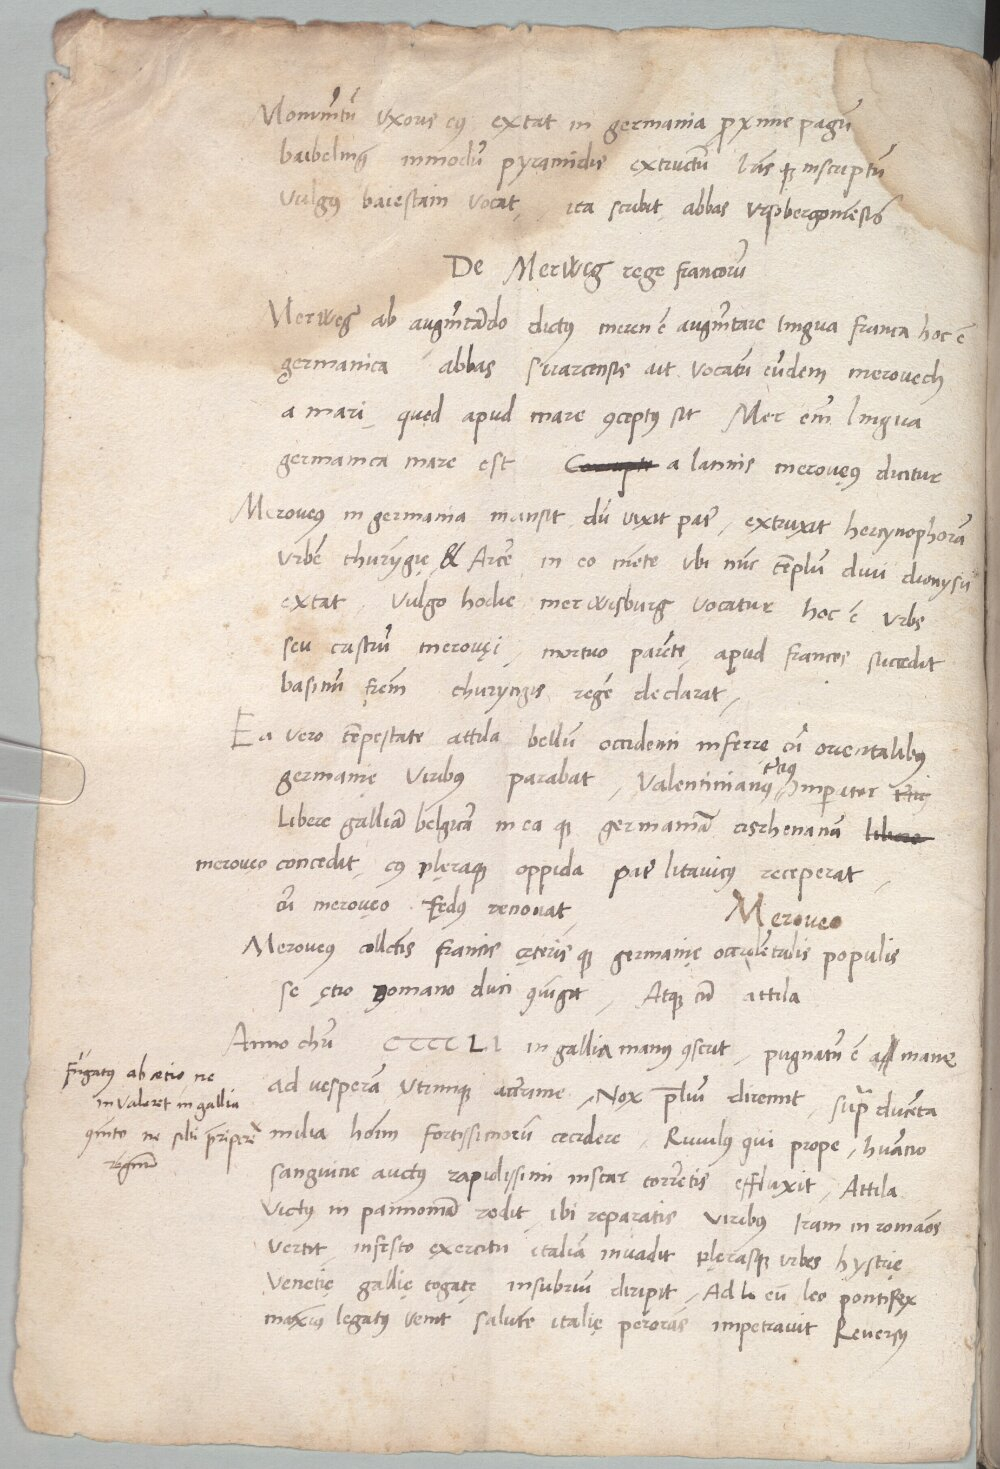 Monumētū uxoris eꝰ extat in germania proxime pagū
baibeling inmodū pyramidis extructū lr̄is qꝫ inscriptū
Vulgꝰ baiestain vocat, ita scribit abbas urspbergomēsis
De Merweg rege francorū
Merweg ab augmētādo dictꝰ meren ē augmētare lingua franca hoc ē
germanica abbas suarcensis ait vocatū eūdem merovech
a mari, quod apud mare ꝯceptꝰ sit Mer em̄ lingua
germanica mare est a latinis merovęꝰ dicitur
Meroveꝰ in germania mansit dū vixit pater, extruxit hercynophorā
urbē thuryngię & Arcē in eo mōte ubi nūc tēplū divi dionysii
extat, Vulgo hodie merwisburg vocatur hoc ē urbs
seu castrū merovęi, mortuo parēte, apud francos succedit
basinū frēm thuryngis regē declarat,
Ea vero tēpestate attila bellū occidenti inferre cū orientalibꝰ
germanię viribꝰ parabat, Valentinianꝰ tertiꝰ Imperator
Libere galliā belgicā in ea qꝫ germaniā cisrhenanā
meroveo concedit, eꝰ plęraqꝫ oppida pater litavicꝰ receperat,
cū meroveo fędꝰ renovat,
Meroveo
Meroveꝰ collectis francis cęteris qꝫ germanię occidētalis populis
se ętio romano duci ꝯiūgit, Atqꝫ cū attila
Anno chr̄i CCCCLI in gallia manꝰ ꝯserit, pugnatū ē a mane
ad vesperā utrimqꝫ acerrime, Nox prelīū diremit, supra ducēta
milia hoīm fortissimorū cecidere, Rivulꝰ qui prope, humano
sanguine auctꝰ rapidissimi instar torrētis effluxit, Attila
victꝰ in pannoniā redit, ibi reparatis viribꝰ Iram in romāos
vertit, infesto exercitu italiā invadit plęrasqꝫ urbes hystrię
Venetię gallię togatę insubriū diripit, Ad eū leo pontifex
maximꝰ legatꝰ venit salutē italię perorās impetravit Reversꝰ
Fūgatꝰ ab aetio, ne
invaleret in gallia
ne sibi p̄riperet
regnū